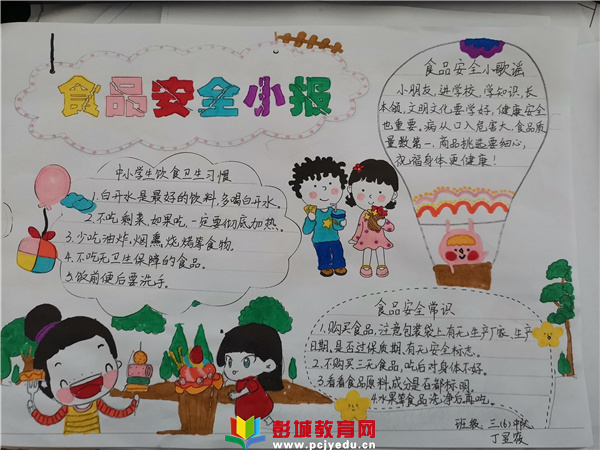 食品安全小报
食品安全小歌谣
小朋友,进学校,学知识,长
本领,文明文化要学好,健康安全
也重要,病从口入危害大,食品质
量数第一,商品挑选要细心,
祝福身体更健康!
中小学生饮食卫生习惯
1.白开水是最好的饮料,多喝白开水。
2.不吃剩菜,如果吃,一定要彻底加热。
3.少吃油炸、烟熏、烧烤等食物。
4.不吃无卫生保障的食品。
5.饭前便后要洗手。
食品安全常识
1.购买食品,注意包装袋上有无生产厂家、生产
日期,是否过保质期,有无安全标志。
2.不购买三无食品,吃后对身体不好。
3.看看食品原料,成分是否都标明。
4.水果等食品洗净后再吃。
班级 三(6)中队
丁
彭城教育网
www.pcjyedu.cn